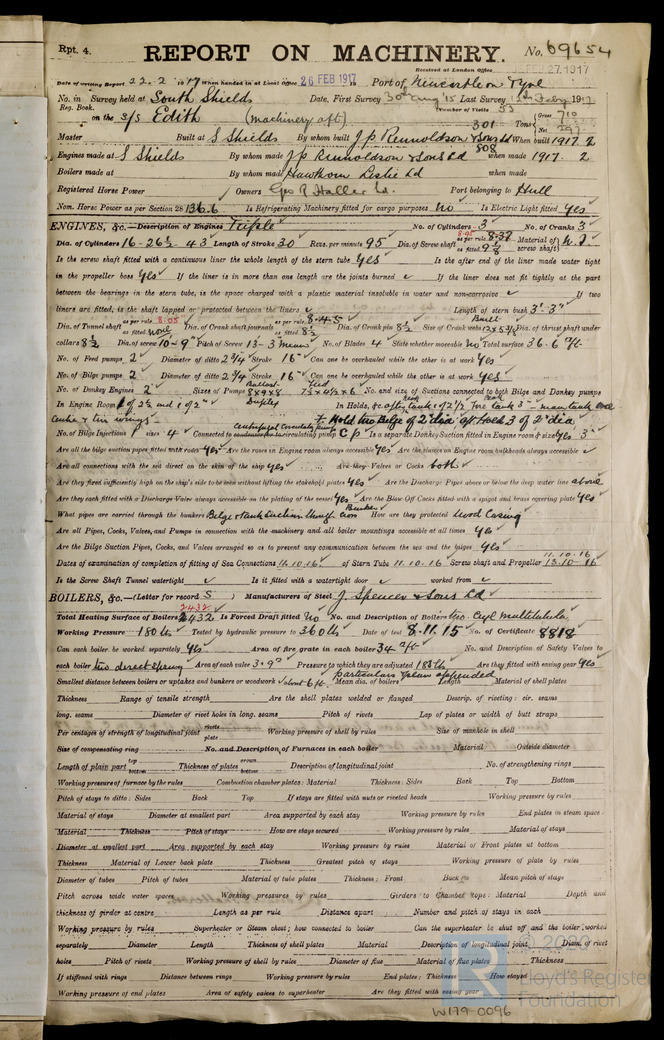 Rpt. 4.
REPORT ON MACHINERY.
No. 69654
Received at London Office 27.1917
Date of writing Report 22.2 1917 When handed in at Local Office 26 FEB 1917 Port of Newcastle on Tyne
No. in Survey held at South Shields Date, First Survey 30 Aug '15 Last Survey 15th Feby 1917
Reg. Book. Number of Visits 53
on the S/S Edith (machinery aft) Tons Gross 710 Net 297
301
Master Built at S Shields By whom built J.P. Rennoldson & Sons Ld When built 1917. 2
Engines made at S Shields By whom made J.P. Rennoldson & Sons Ld 808 when made 1917. 2
Boilers made at By whom made Hawthorn Leslie Ld when made
Registered Horse Power Owners Geo R Haller Ld. Port belonging to Hull
Nom. Horse Power as per Section 28 136.6 Is Refrigerating Machinery fitted for cargo purposes No Is Electric Light fitted Yes
ENGINES, &c.—Description of Engines Triple No. of Cylinders 3 No. of Cranks 3
Dia. of Cylinders 16-26½-43 Length of Stroke 30 Revs. per minute 95 Dia. of Screw shaft as per rule 8.95 8.37 as fitted 9⅛ Material of screw shaft W.I.
Is the screw shaft fitted with a continuous liner the whole length of the stern tube Yes Is the after end of the liner made water tight
in the propeller boss Yes If the liner is in more than one length are the joints burned If the liner does not fit tightly at the part
between the bearings in the stern tube, is the space charged with a plastic material insoluble in water and non-corrosive If two
liners are fitted, is the shaft lapped or protected between the liners Length of stern bush 3'-3"
Dia. of Tunnel shaft as per rule 8.05 as fitted none Dia. of Crank shaft journals as per rule 8.45 as fitted 8½ Dia. of Crank pin 8½ Size of Crank webs Built 17x5⅜ Dia. of thrust shaft under
collars 8½ Dia. of screw 10-9" Pitch of Screw 13-3 mean No. of Blades 4 State whether moveable No Total surface 36.6 □ft
No. of Feed pumps 2 Diameter of ditto 2¾ Stroke 16" Can one be overhauled while the other is at work Yes
No. of Bilge pumps 2 Diameter of ditto 2¾ Stroke 16" Can one be overhauled while the other is at work Yes
No. of Donkey Engines 2 Sizes of Pumps Ballast 8x9x8 Duplex Feed 7½x4½x6 No. and size of Suctions connected to both Bilge and Donkey pumps
In Engine Room 1 of 2½ and 1 of 2" In Holds, &c. after tank 1 of 2½ Fore tank 3" main tank one
centre & two wings + Hold two Bilge of 2"dia, aft Hold 3 of 2"dia,
No. of Bilge Injections 1 sizes 4 Connected to centrifugal circulating pump C P Is a separate Donkey Suction fitted in Engine room & size Yes 3"
Are all the bilge suction pipes fitted with roses Yes Are the roses in Engine room always accessible Yes Are the sluices on Engine room bulkheads always accessible
Are all connections with the sea direct on the skin of the ship Yes Are they Valves or Cocks both
Are they fixed sufficiently high on the ship's side to be seen without lifting the stokehold plates Yes Are the Discharge Pipes above or below the deep water line above
Are they each fitted with a Discharge Valve always accessible on the plating of the vessel Yes Are the Blow Off Cocks fitted with a spigot and brass covering plate Yes
What pipes are carried through the bunkers Bilge & tank suction through Bunker How are they protected Wood Casing
Are all Pipes, Cocks, Valves, and Pumps in connection with the machinery and all boiler mountings accessible at all times Yes
Are the Bilge Suction Pipes, Cocks, and Valves arranged so as to prevent any communication between the sea and the bilges Yes
Dates of examination of completion of fitting of Sea Connections 11.10.16 of Stern Tube 11.10.16 Screw shaft and Propeller 11.10.16 13.10.16
Is the Screw Shaft Tunnel watertight Is it fitted with a watertight door worked from
BOILERS, &c.—(Letter for record S) Manufacturers of Steel J. Spencer & Sons Ld
Total Heating Surface of Boilers 2432 2432 Is Forced Draft fitted No No. and Description of Boilers two Cyl multitubular
Working Pressure 180 lbs Tested by hydraulic pressure to 360 lbs Date of test 8.11.15 No. of Certificate 8818
Can each boiler be worked separately Yes Area of fire grate in each boiler 34 □ft No. and Description of Safety Valves to
each boiler two direct spring Area of each valve 3.9□" Pressure to which they are adjusted 185 lbs Are they fitted with easing gear Yes
Smallest distance between boilers or uptakes and bunkers or woodwork about 6ft Particulars & plan appended Mean dia. of boilers Length Material of shell plates
Thickness Range of tensile strength Are the shell plates welded or flanged Descrip. of riveting: cir. seams
long. seams Diameter of rivet holes in long. seams Pitch of rivets Lap of plates or width of butt straps
Per centages of strength of longitudinal joint rivets plate Working pressure of shell by rules Size of manhole in shell
Size of compensating ring No. and Description of Furnaces in each boiler Material Outside diameter
Length of plain part top bottom Thickness of plates crown bottom Description of longitudinal joint No. of strengthening rings
Working pressure of furnace by the rules Combustion chamber plates: Material Thickness: Sides Back Top Bottom
Pitch of stays to ditto: Sides Back Top If stays are fitted with nuts or riveted heads Working pressure by rules
Material of stays Diameter at smallest part Area supported by each stay Working pressure by rules End plates in steam space:
Material Thickness Pitch of stays How are stays secured Working pressure by rules Material of stays
Diameter at smallest part Area supported by each stay Working pressure by rules Material of Front plates at bottom
Thickness Material of Lower back plate Thickness Greatest pitch of stays Working pressure of plate by rules
Diameter of tubes Pitch of tubes Material of tube plates Thickness: Front Back Mean pitch of stays
Pitch across wide water spaces Working pressures by rules Girders to Chamber tops: Material Depth and
thickness of girder at centre Length as per rule Distance apart Number and pitch of stays in each
Working pressure by rules Superheater or Steam chest; how connected to boiler Can the superheater be shut off and the boiler worked
separately Diameter Length Thickness of shell plates Material Description of longitudinal joint Diam. of rivet
holes Pitch of rivets Working pressure of shell by rules Diameter of flue Material of flue plates Thickness
If stiffened with rings Distance between rings Working pressure by rules End plates: Thickness How stayed
Working pressure of end plates Area of safety valves to superheater Are they fitted with easing gear
© 2020
Lloyd's Register
Foundation
W179-0096